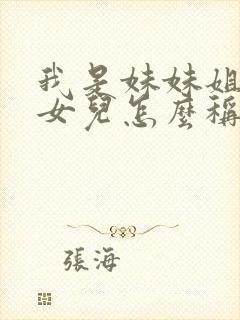 我是妹妹姐
女兒怎麼稱
張海